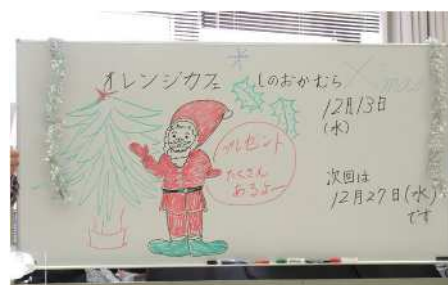 オレンジカフェ しのおかむら
X'mas
12月13日
(水)
プレゼント
たくさん
あるよー
次回は
12月27日(水)
です